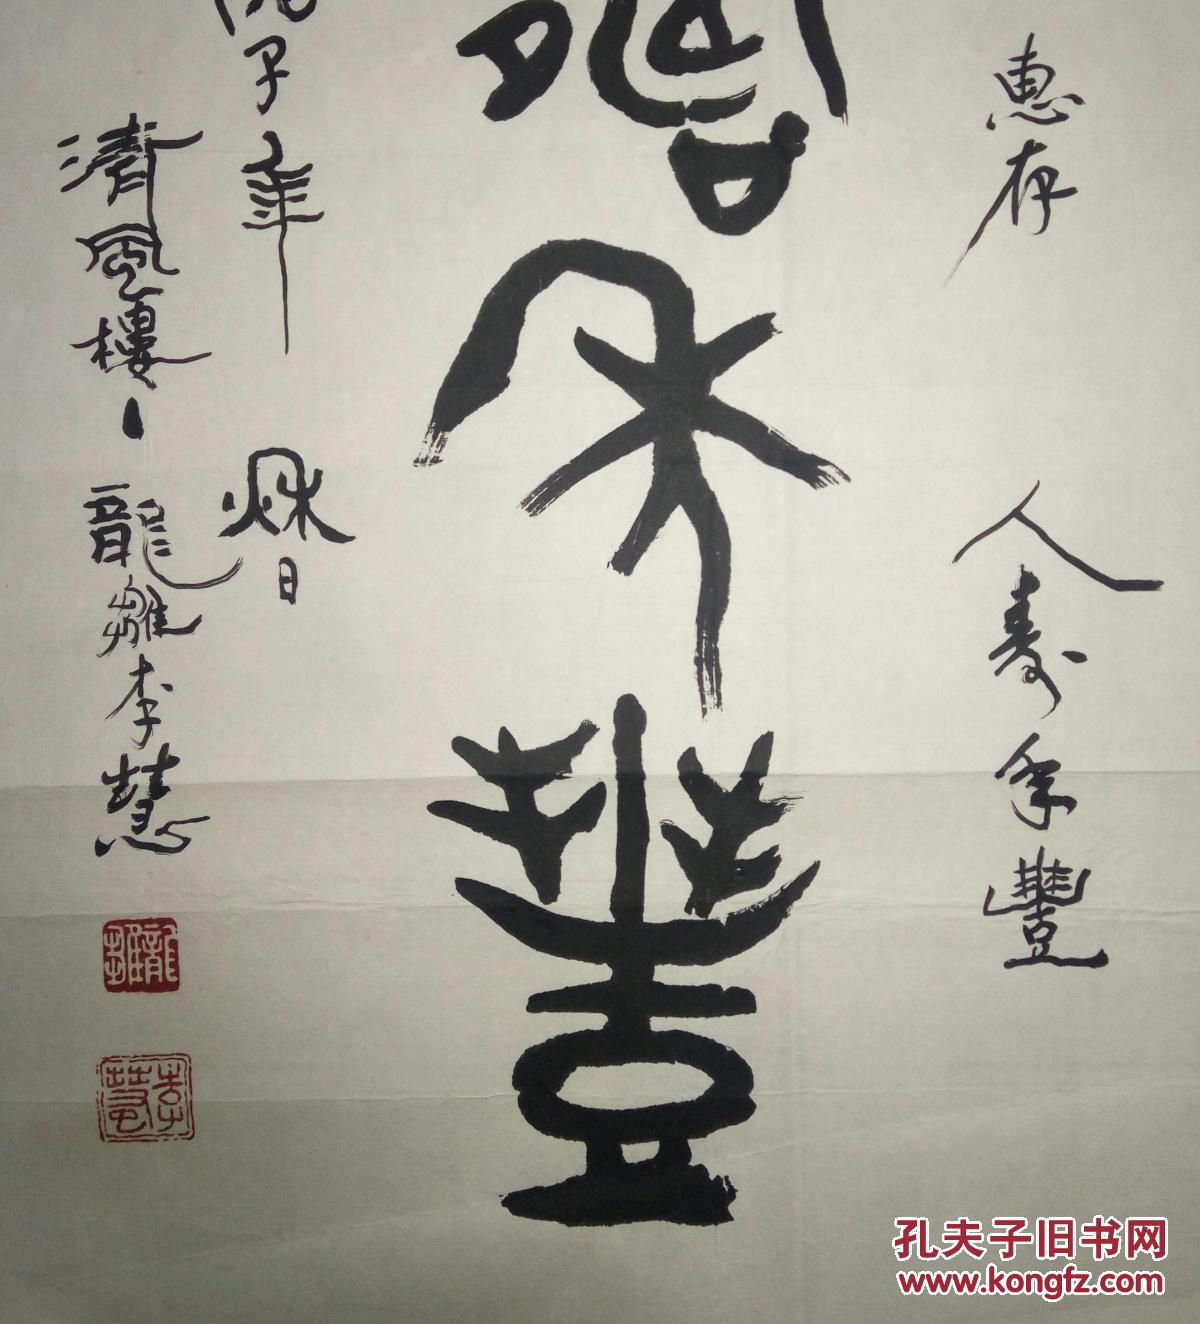 惠存
人壽年豐
壽
年豐
子年
秋日
清風樓
龍雛李慧
龍雛
李慧
孔夫子旧书网
www.kongfz.com